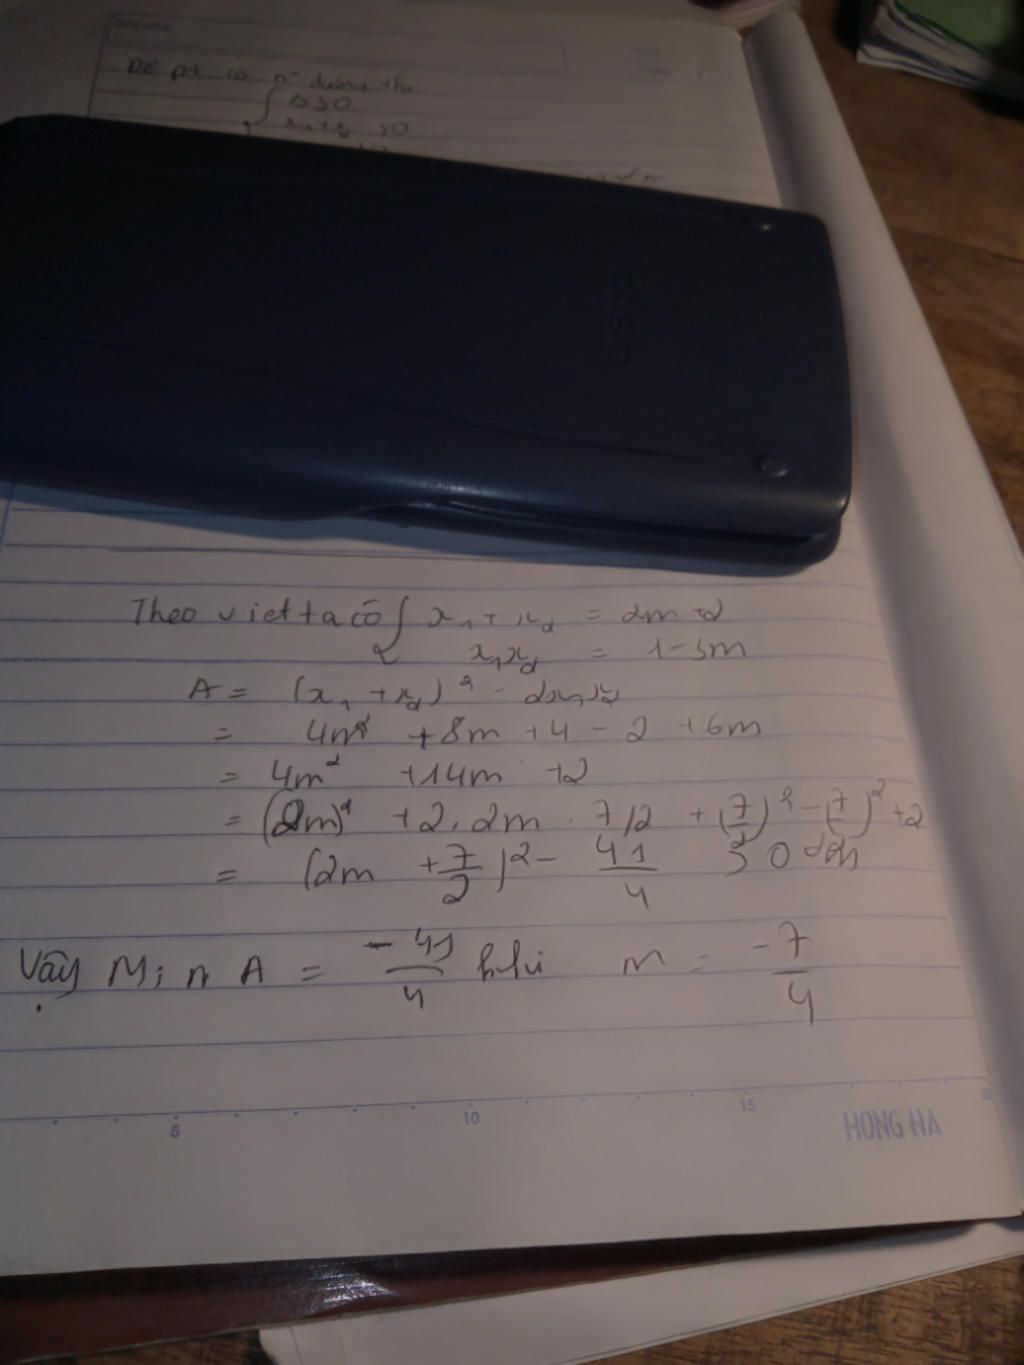 Để pt có n° dương thì
Δ ≥ 0
x₁+x₂ > 0
∀m
CASIO
Theo viet ta có { x₁ + x₂ = 2m+2
x₁x₂ = 1-3m
A = (x₁ + x₂)² - 2x₁x₂
= 4m² + 8m + 4 - 2 + 6m
= 4m² + 14m + 2
= (2m)² + 2. 2m . 7/2 + (7/2)² - (7/2)² + 2
= (2m + 7/2)² - 41/4 ≥ 0
Vậy Min A = -41/4 khi m = -7/4
5 10 15 20
HONG HA